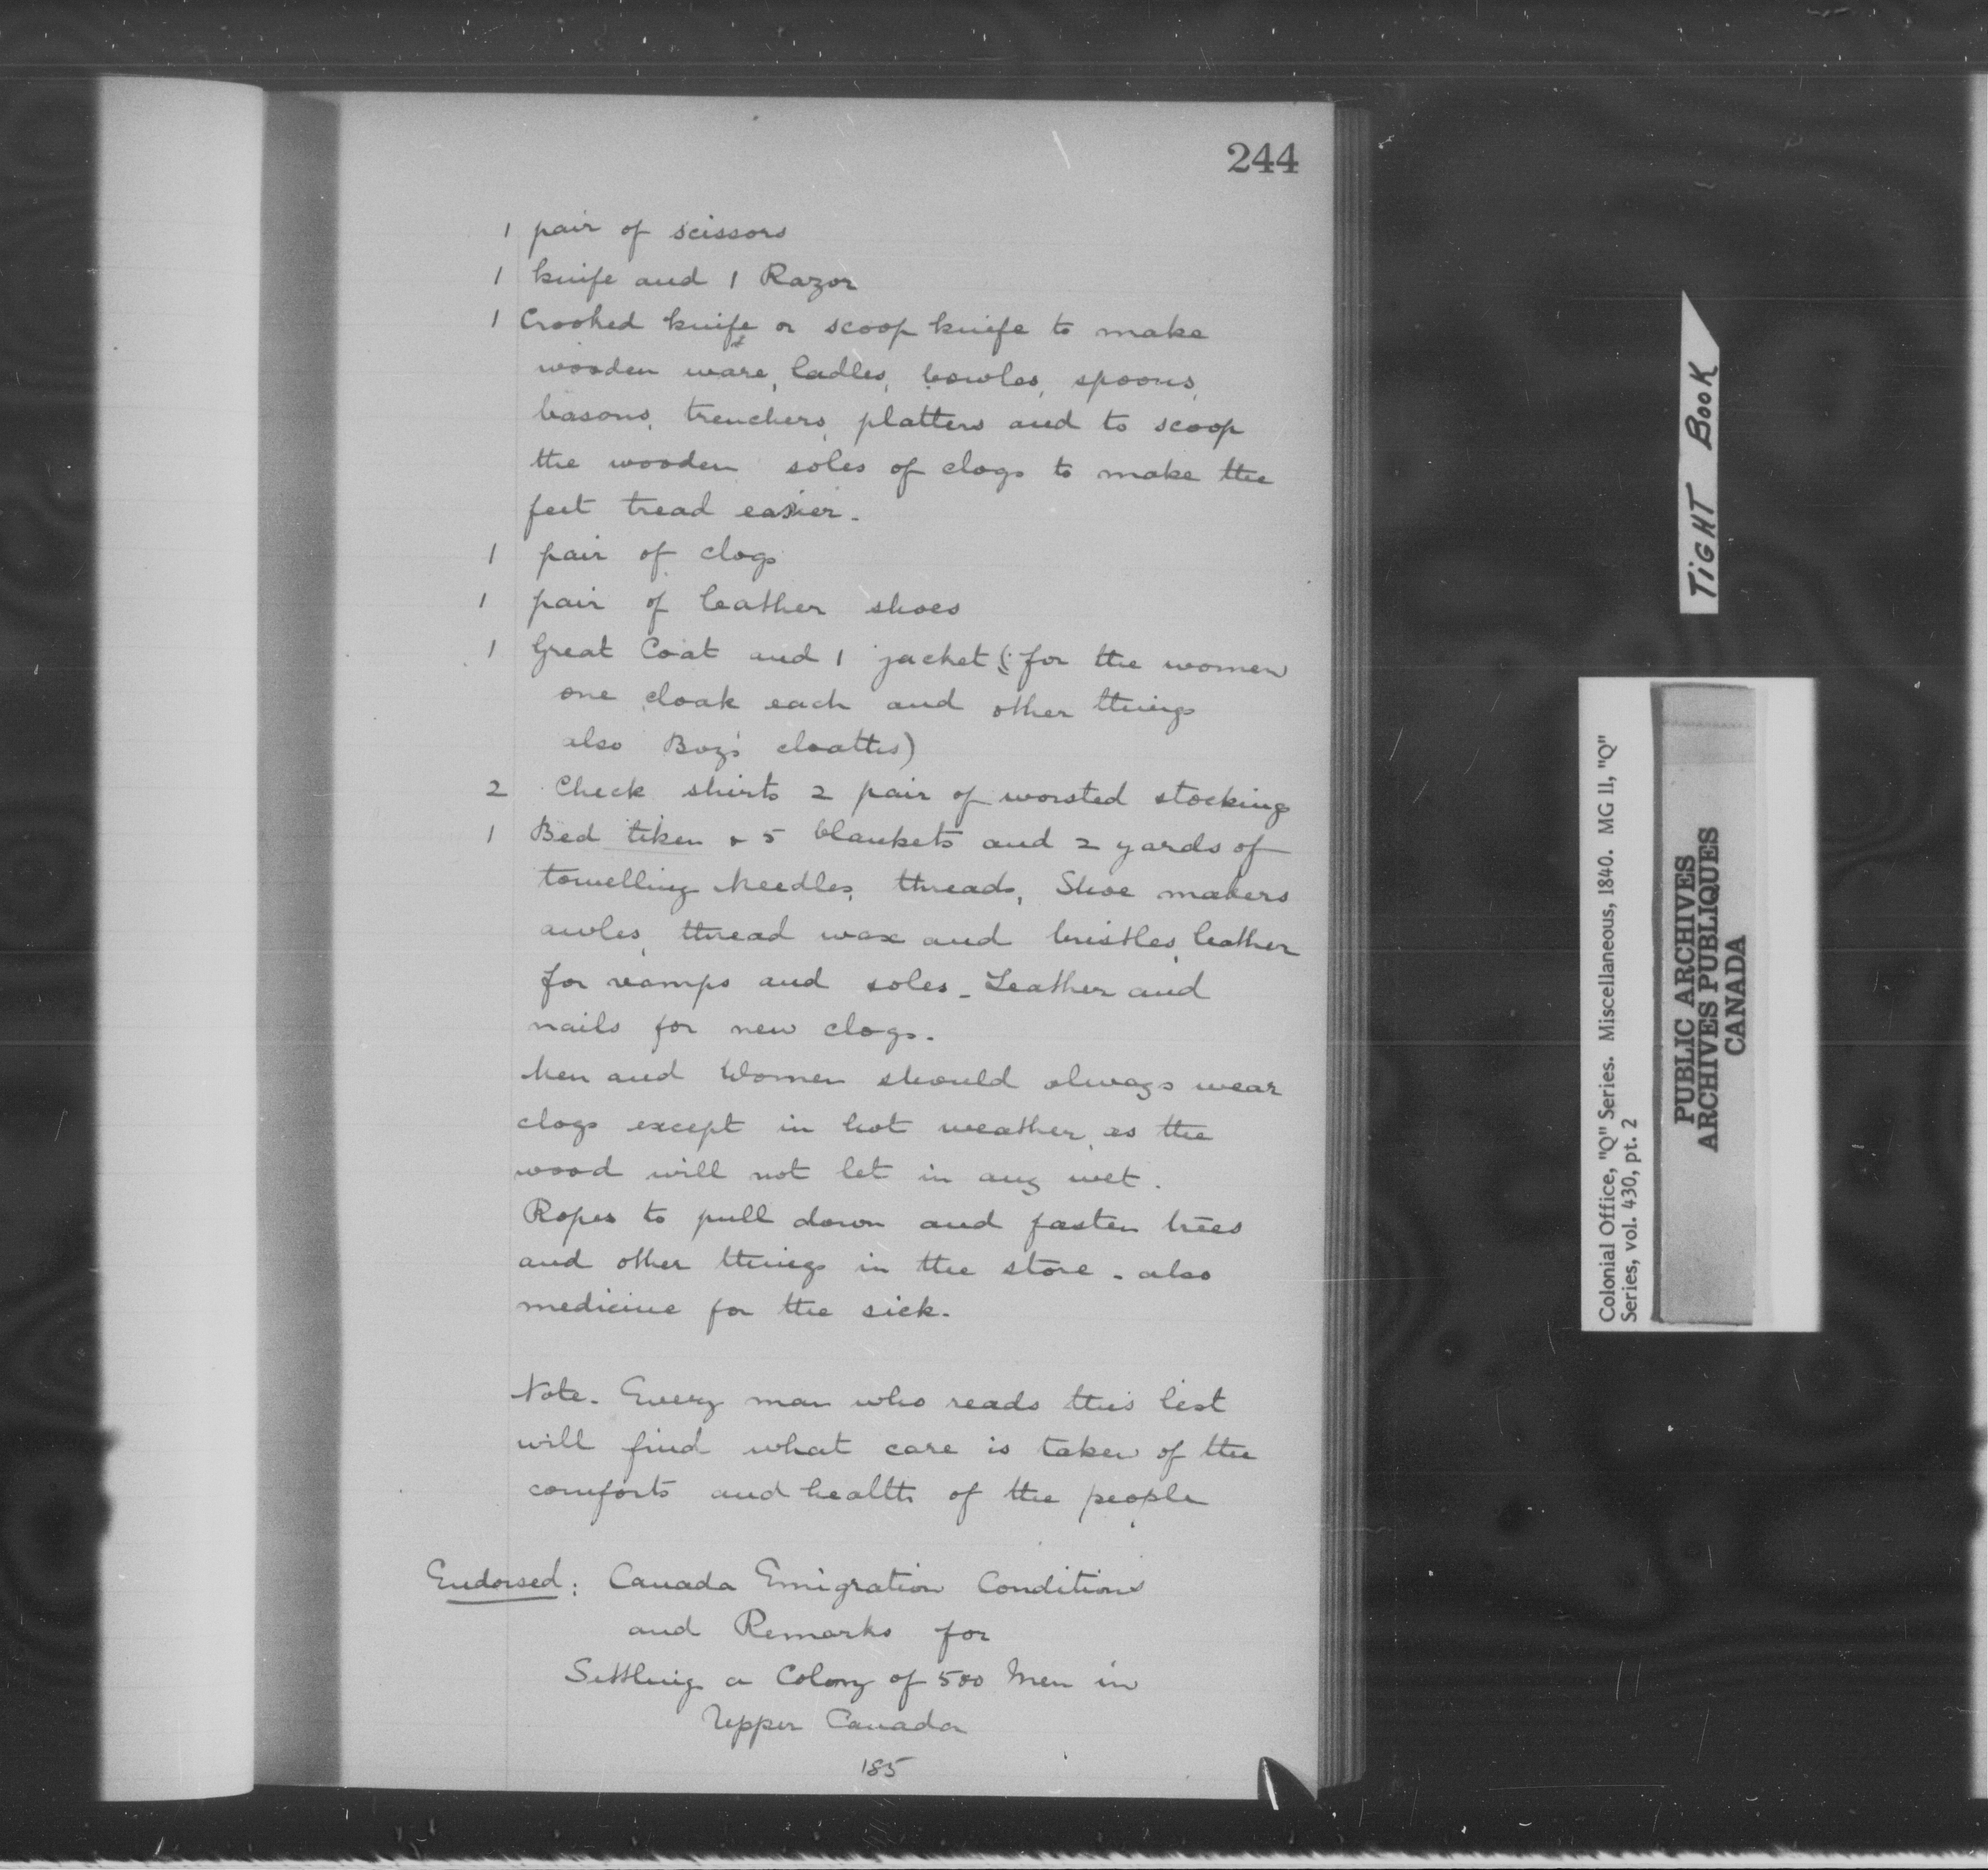 244
1 pair of scissors
1 knife and 1 Razor
1 Crooked knife or scoop knife to make
wooden ware, ladles, bowles, spoons,
basons, trenchers, platters and to scoop
the wooden soles of clogs to make the
feet tread easier.
1 pair of clogs
1 pair of leather shoes
1 Great Coat and 1 jacket (for the women
one cloak each and other things
also Boy's cloaths)
2 Check shirts 2 pair of worsted stockings
1 Bed tiken & 5 blankets and 2 yards of
towelling Needles, threads, Shoe makers
awles, thread wax and bristles, leather
for vamps and soles - Leather and
nails for new clogs.
Men and Women should always wear
clogs except in hot weather, as the
wood will not let in any wet.
Ropes to pull down and fasten trees
and other things in the store - also
medicine for the sick.
Note - Every man who reads this list
will find what care is taken of the
comforts and health of the people
Endorsed: Canada Emigration Conditions
and Remarks for
Settling a Colony of 500 Men in
Upper Canada
185
TIGHT BOOK
Colonial Office, "Q" Series. Miscellaneous, 1840. MG 11, "Q"
Series, vol. 430, pt. 2
PUBLIC ARCHIVES
ARCHIVES PUBLIQUES
CANADA